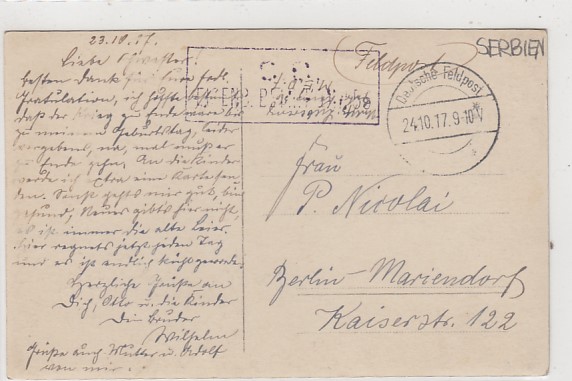 23.10.17.
Liebe Schwester!
besten Dank für eure frdl.
Gratulation, ich hoffte
daß der Krieg zu Ende wäre bis
zu meinem Geburtstag, leider
vergebens, na, mal muß er
zu Ende gehn. An die Kinder
werde ich extra eine Karte senden
den. Sonst gehts mir gut, bin
gesund, Neues gibts hier nicht,
es ist immer die alte Leier.
Hier regnets jetzt jeden Tag
und es ist endlich kühl geworden.
Herzliche Grüße an
Dich, Otto u. die Kinder
Dein Bruder
Wilhelm
Grüße auch Mutter u. Adolf
von mir.
Feldpost
SERBIEN
S.B.
Deutsche Feldpost
24.10.17.9-10V
Frau
P. Nicolai
Berlin-Mariendorf
Kaiserstr. 122